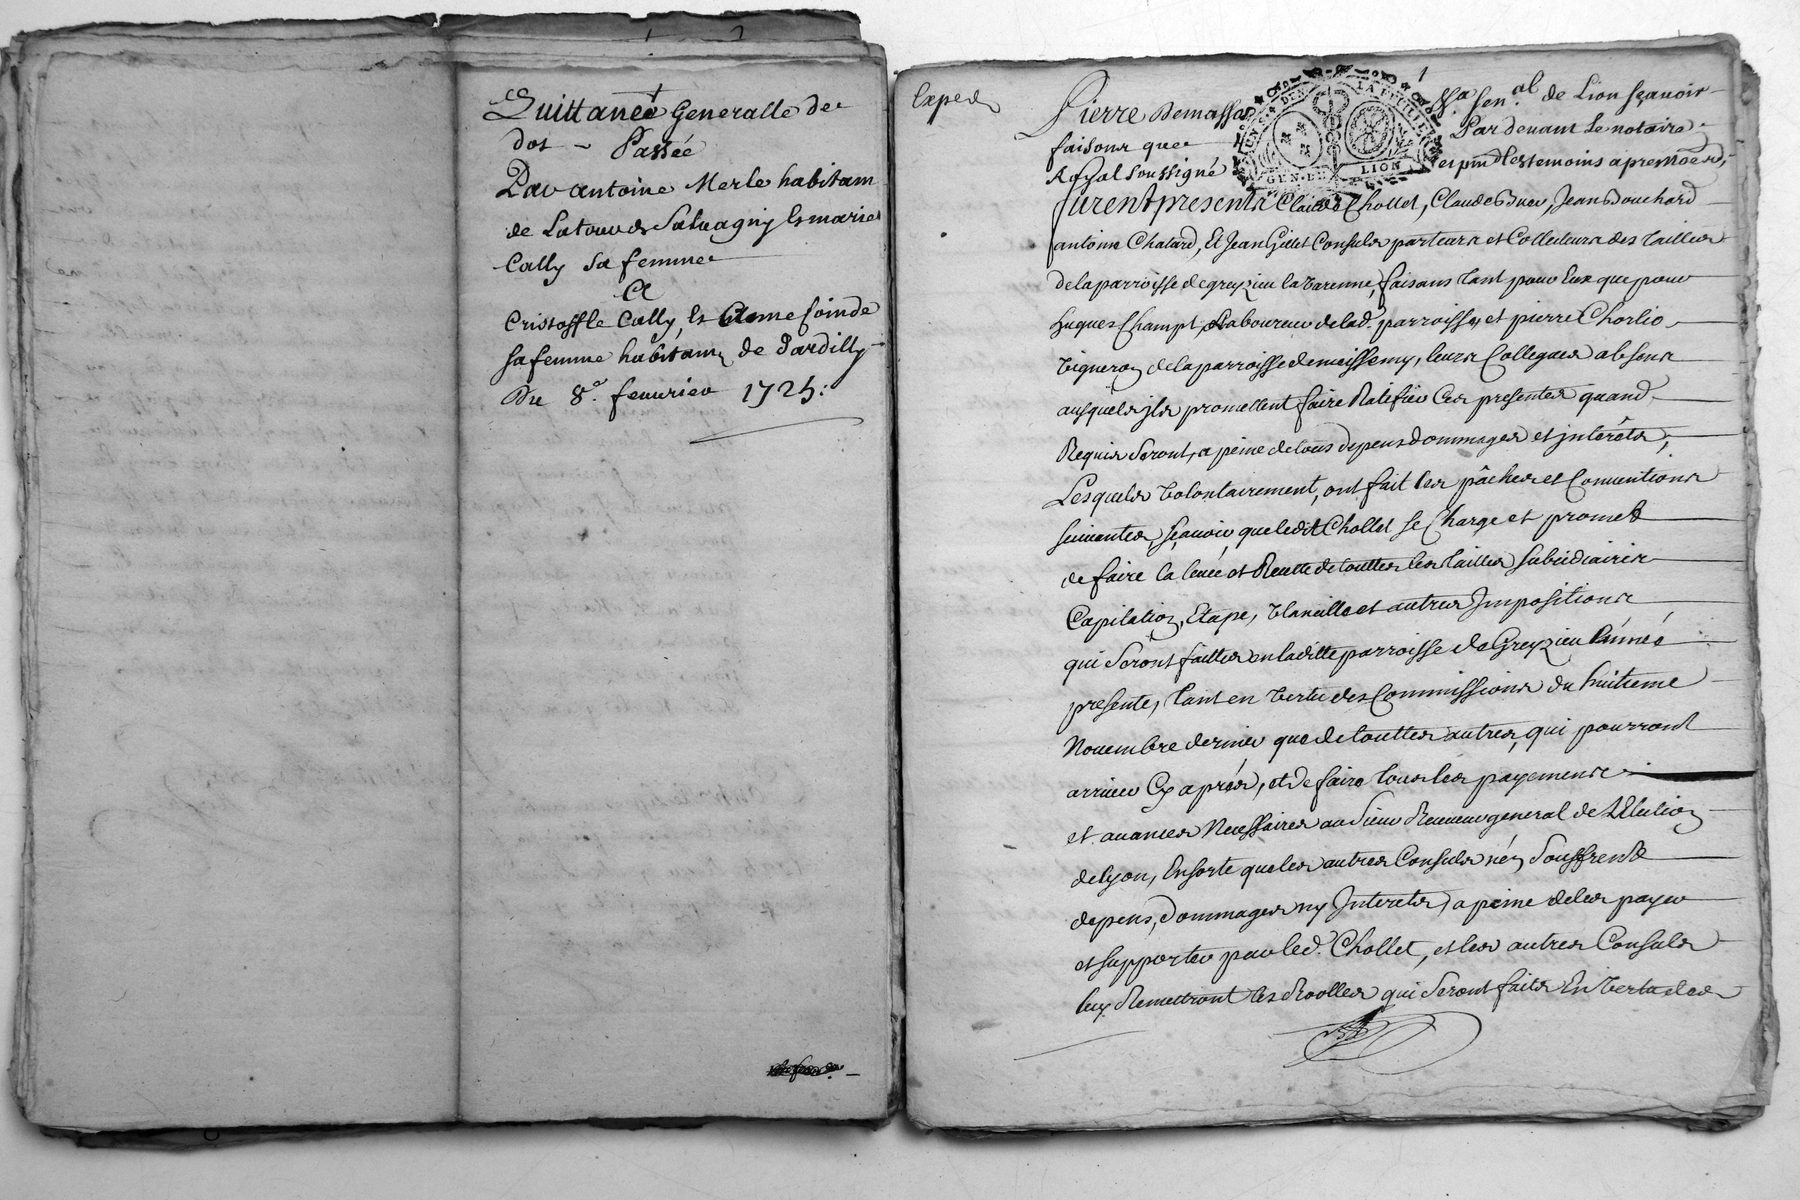 Quittance Generalle de
dot ~ Passée
Par antoine Merle habitant
de Latour de Salvagny Et marie
Cally sa femme
A
Cristoffle Cally, Et Etme Coinde
sa femme habitant de Dardilly
Du 8.e feuurier 1725.
Exped
Pierre Demassa
ssa sen.al de Lion sçauoir
faisons que
Par deuant Le notaire
Royal soussigné
et pnt les temoins apres només,
GEN. DE LION
furent presents Claude Chollet, Claude Buer, Jean Bouchard
antoine Chatard, Et Jean Gillet Consuls parteurs et Collecteurs des tailles
de la parroisse de greyzieu la varenne, faisans tant pour Eux que pour
hugues Champt, Laboureur de lad. parroisse, et pierre Chorlio
vigneron de la parroisse de meissemy, leurs Collegues absens
ausquels jls promettent faire Ratifier Ces presentes quand
Requis seront, a peine de tous depens dommages et jnterêts,
Lesquels volontairement, ont fait les pâches et Conuentions
suiuantes, sçauoir que ledit Chollet se Charge et promet
de faire la leuée et Recette de touttes les tailles subsidiaires
Capitation, Etape, Vstancille et autres Impositions
qui seront faittes en laditte parroisse de Greyzieu l'année
presente, tant en vertu des Commissions du huitieme
Nouembre dernier que de touttes autres, qui pourront
arriuer Cy aprés, et de faire tous les payemens
et auances Necessaires au Sieur Receueur general de L'Election
de lyon, Ensorte que les autres Consuls n'en souffrent
depens, dommages ny Interets, a peine de les payer
et supporter par led. Chollet, et les autres Consuls
luy Remettront les Roolles qui seront faits En vertu des